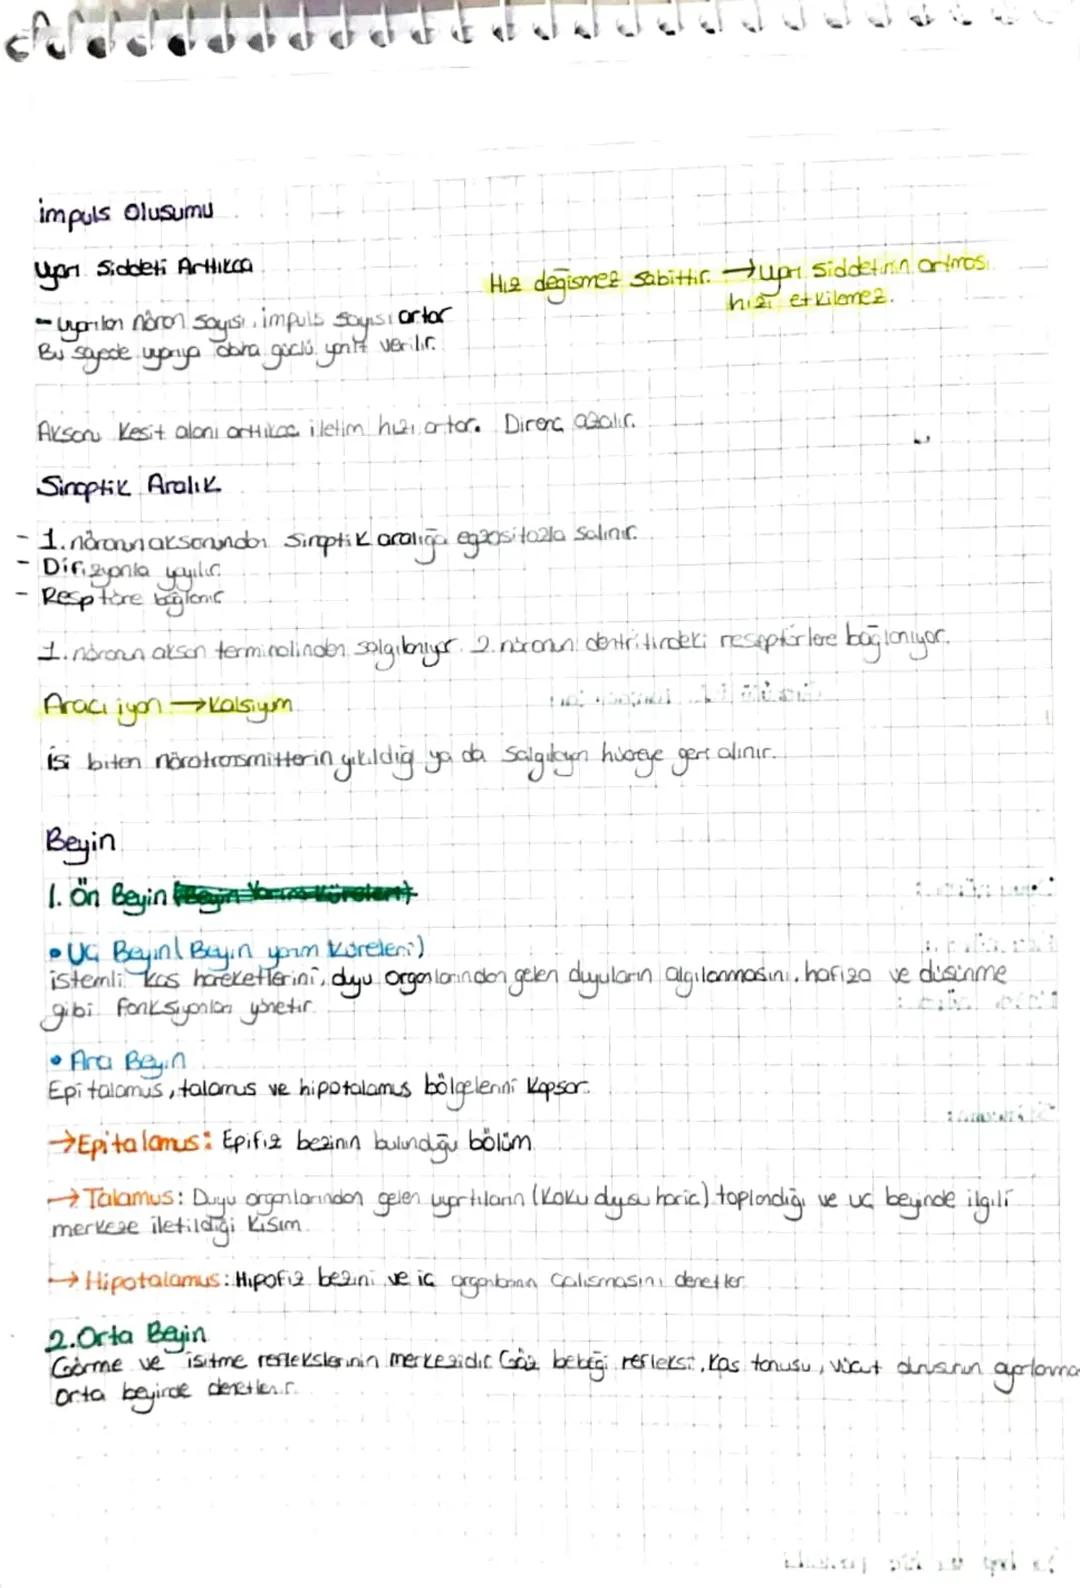 impuls Oluşumu
Uyarı Şiddeti Arttıkça
Hız değişmez sabittir. → uyarı şiddetinin artması
hızı etkilemez.
- uyarılan nöron sayısı, impuls sayısı artar
Bu sayede uyarıya daha güçlü yanıt verilir.
Akson Kesit alanı arttıkça iletim hızı artar. Direnç azalır.
Sinaptik Aralık
- 1. nöronun aksonundan sinaptik aralığa egzositozla salınır.
- Difizyonla yayılır.
- Resptöre bağlanır
1. nöronun akson terminalinden salgılanıyor. 2. nöronun dentritindeki reseptörlere bağlanıyor.
Aracı iyon → Kalsiyum
İşi biten nörotransmitterin yıkıldığı ya da salgılayan hücreye geri alınır.
Beyin
1. Ön Beyin (Beyin Yarım Küreleri)
• Uç Beyin (Beyin yarım Küreleri)
istemli kas hareketlerini, duyu organlarından gelen duyuların algılanmasını, hafıza ve düşünme
gibi fonksiyonları yönetir.
• Ara Beyin
Epitalamus, talamus ve hipotalamus bölgelerini kapsar.
→ Epitalamus: Epifiz bezinin bulunduğu bölüm
→ Talamus: Duyu organlarından gelen uyartıların (Koku duyusu hariç) toplandığı ve uç beyinde ilgili
merkeze iletildiği kısım.
→ Hipotalamus: Hipofiz bezini ve iç organların çalışmasını denetler
2. Orta Beyin
Görme ve işitme reflekslerinin merkezidir. Göz bebeği refleksi, kas tonusu, vücut duruşunun ayarlanma
orta beyinde denetlenir.